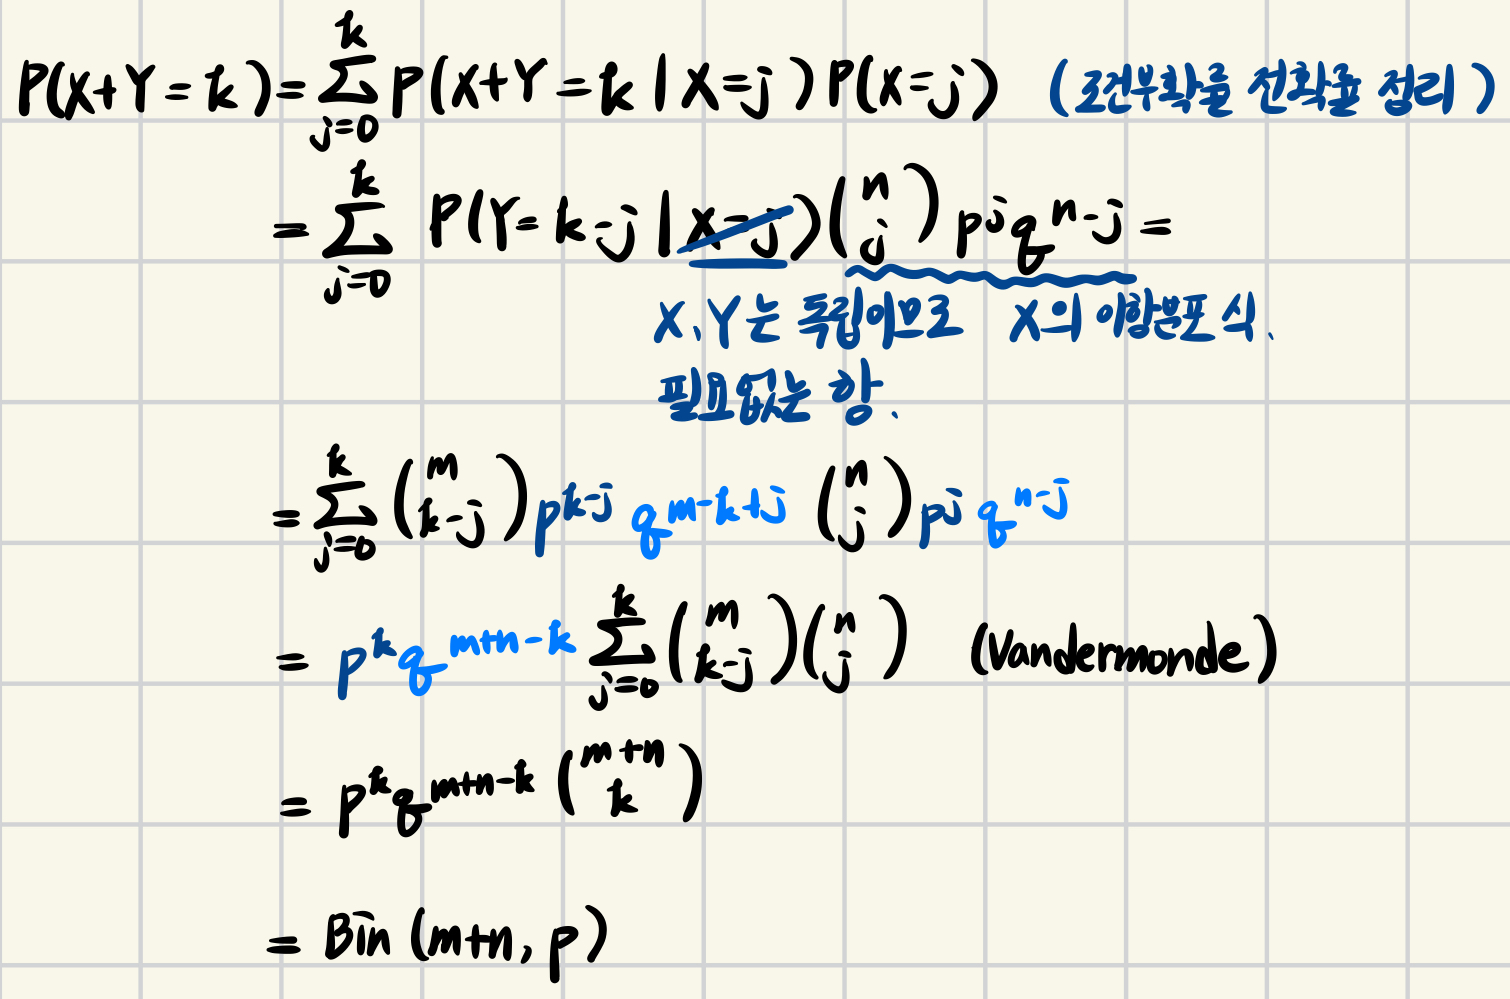 P(X+Y=k)=\sum_{j=0}^{k} P(X+Y=k|X=j)P(X=j) (조건부확률 전확률 정리)
=\sum_{j=0}^{k} P(Y=k-j|X=j)\binom{n}{j} p^{j} q^{n-j} =
X, Y는 독립이므로 X의 이항분포 식.
필요없는 항.
=\sum_{j=0}^{k} \binom{m}{k-j} p^{k-j} q^{m-k+j} \binom{n}{j} p^{j} q^{n-j}
= p^{k} q^{m+n-k} \sum_{j=0}^{k} \binom{m}{k-j} \binom{n}{j} (Vandermonde)
= p^{k} q^{m+n-k} \binom{m+n}{k}
= Bin (m+n, p)